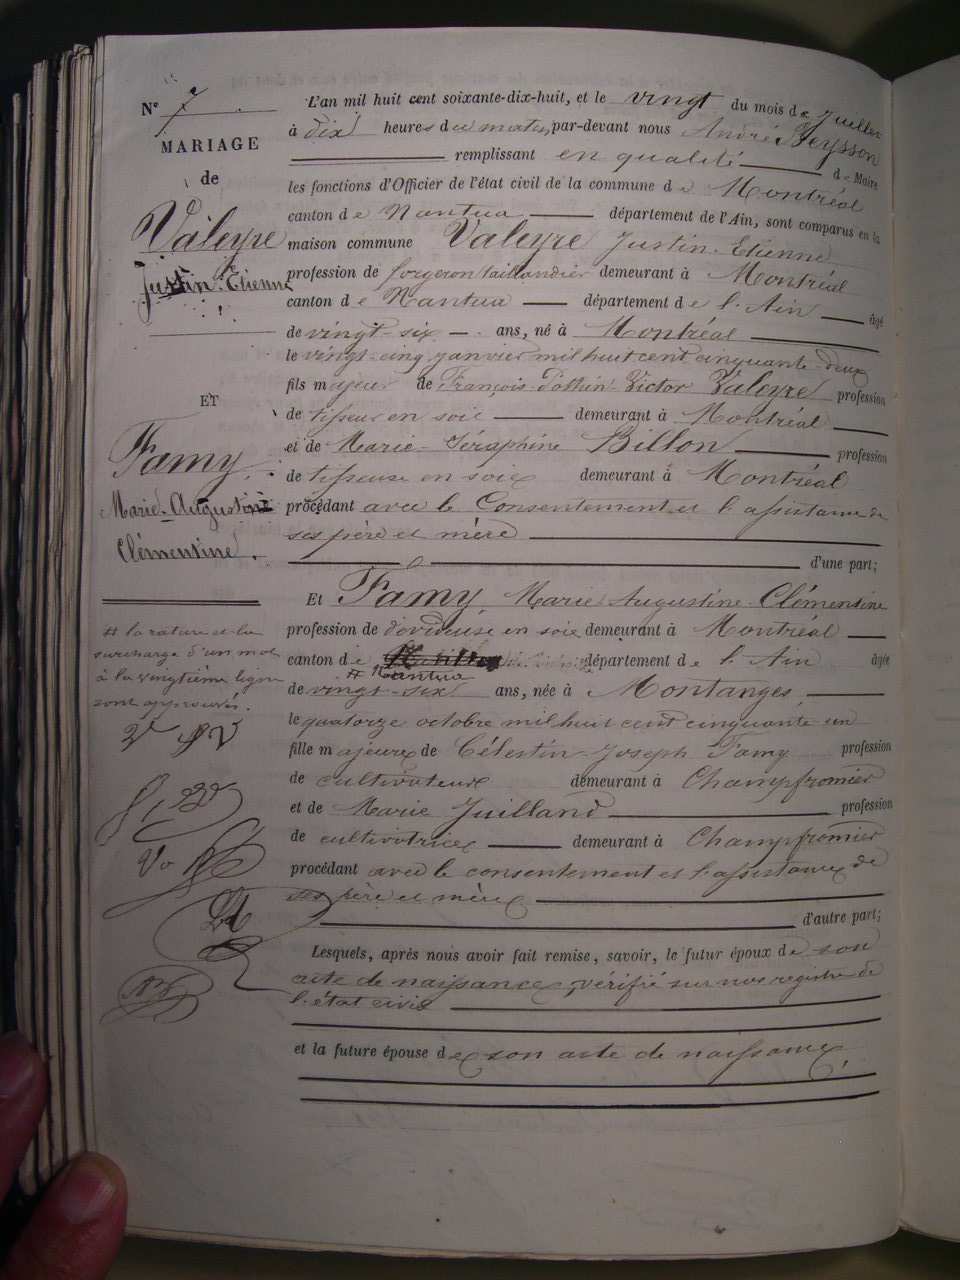 N° 7
MARIAGE
de
Valeyre
Justin-Etienne
ET
Famy
Marie-Augustine
Clémentine.
# la rature et la
surcharge d'un mot
à la vingtième ligne
sont approuvés.
L'an mil huit cent soixante-dix-huit, et le vingt du mois de Juillet
à dix heures du matin, par-devant nous André Beysson
remplissant en qualité de Maire
les fonctions d'Officier de l'état civil de la commune de Montréal
canton de Nantua département de l'Ain, sont comparus en la
maison commune Valeyre Justin-Etienne
profession de forgeron taillandier demeurant à Montréal
canton de Nantua département de l'Ain âgé
de vingt-six ans, né à Montréal
le vingt-cinq janvier mil huit cent cinquante-deux
fils majeur de François-Pothin Victor Valeyre profession
de tisseur en soie demeurant à Montréal
et de Marie-Séraphine Billon profession
de tisseuse en soie demeurant à Montréal
procédant avec le Consentement et l'assistance de
ses père et mère
d'une part;
Et Famy, Marie Augustine Clémentine
profession de dévideuse en soie demeurant à Montréal
canton de département de l'Ain âgée
# Nantua
de vingt-six ans, née à Montanges
le quatorze octobre mil huit cent cinquante un
fille majeure de Célestin-Joseph Famy profession
de cultivateur demeurant à Champfromier
et de Marie Juilland profession
de cultivatrice demeurant à Champfromier
procédant avec le consentement et l'assistance de
ses père et mère
d'autre part;
Lesquels, après nous avoir fait remise, savoir, le futur époux de son
acte de naissance, vérifié sur nos registre de
l'état civil
et la future épouse de son acte de naissance